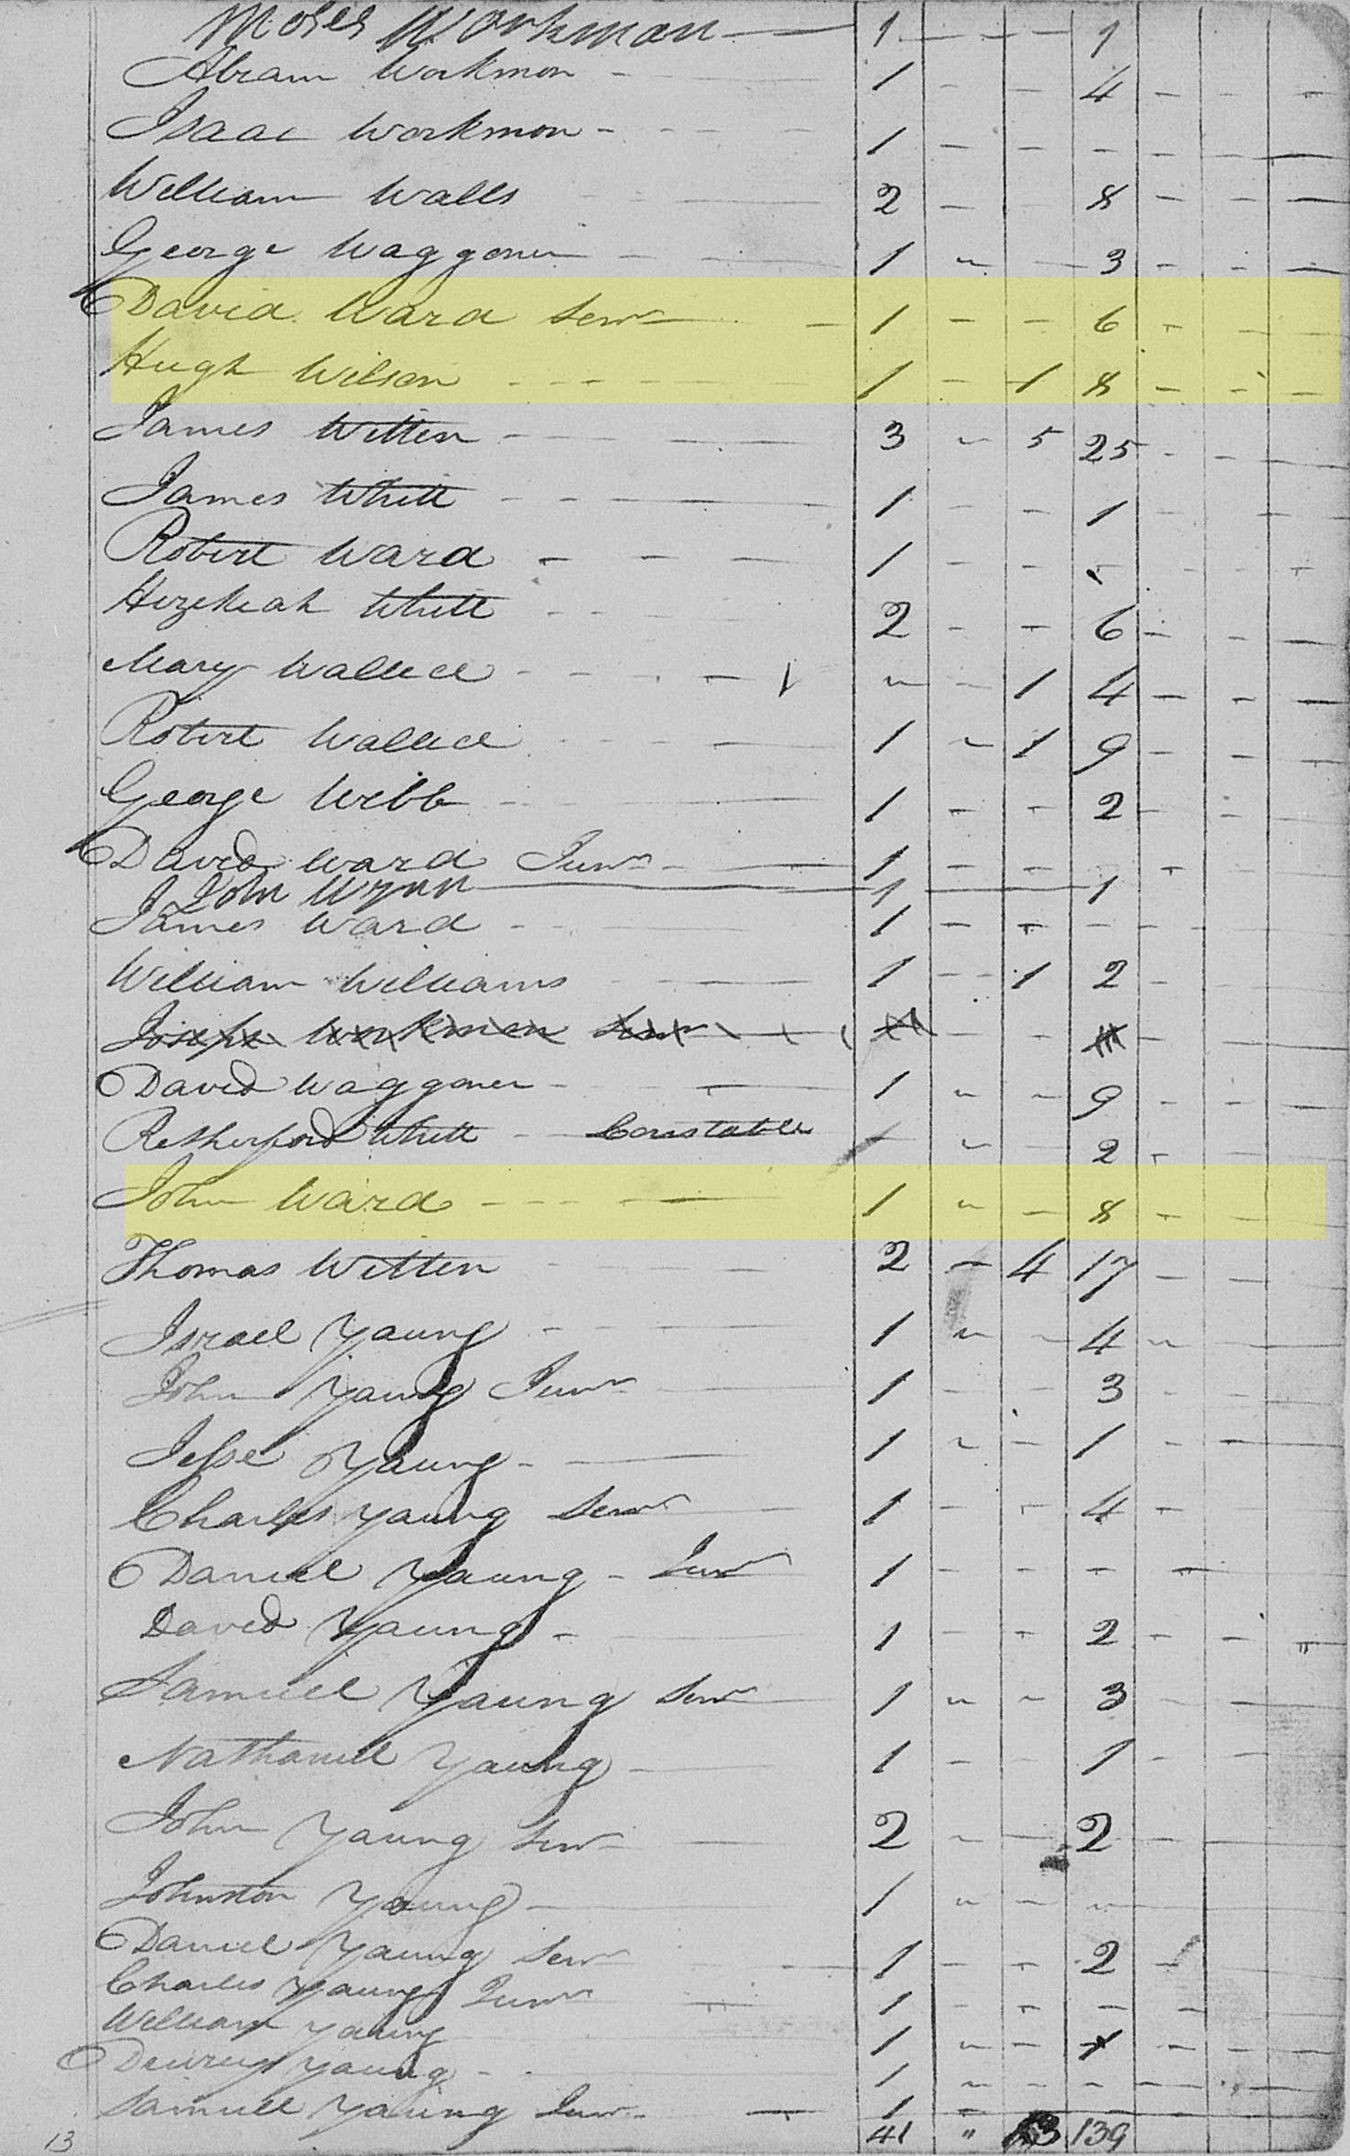 Moses Workman 1 - - - 1
Abram Workmon - 1 - - 4 - - -
Isaac Workmon - 1 - - - - - -
William Walls 2 - 8 - - -
George Waggoner 1 - - 3 - - -
David Ward Senr 1 - - 6 -
Hugh Wilson 1 - 1 8 - - -
James Witten 3 - 5 25 - -
James Whitt 1 - - 1
Robert Ward 1 - - -
Hezekiah Whitt 2 - - 6 - - -
Mary Wallace 1 - - 1 4 - - -
Robert Wallace 1 - 1 9 - - -
George Webb 1 - - 2 - -
David Ward Junr 1 - - - -
John Wynn 1 1
James Ward 1 - - - - -
William Williams 1 - 1 2 - - -
Joseph Workman Senr
David Waggoner 1 - - 9 - - -
Retherford Whitt - Constable - - 2 -
John Ward 1 - - 8 - -
Thomas Witten 2 - 4 17 - -
Israel Young 1 - - 4 -
John Young Junr 1 - - 3 - -
Jesse Young 1 - - 1 - -
Charles Young Senr 1 - - 4 -
Daniel Young - Junr 1 - - - -
David Young - 1 - - 2 - - "
Samuel Young Senr 1 - - 3 - -
Nathaniel Young 1 - - 1 - -
John Young Senr 2 - - 2 -
Johnston Young 1 - - -
Daniel Young Senr 1 - - 2 -
Charles Young Junr 1 - - - -
William Young 1 - - 1 - - -
Drury Young - 1 - - - -
Samuel Young Junr 1 -
13 41 " 13 139